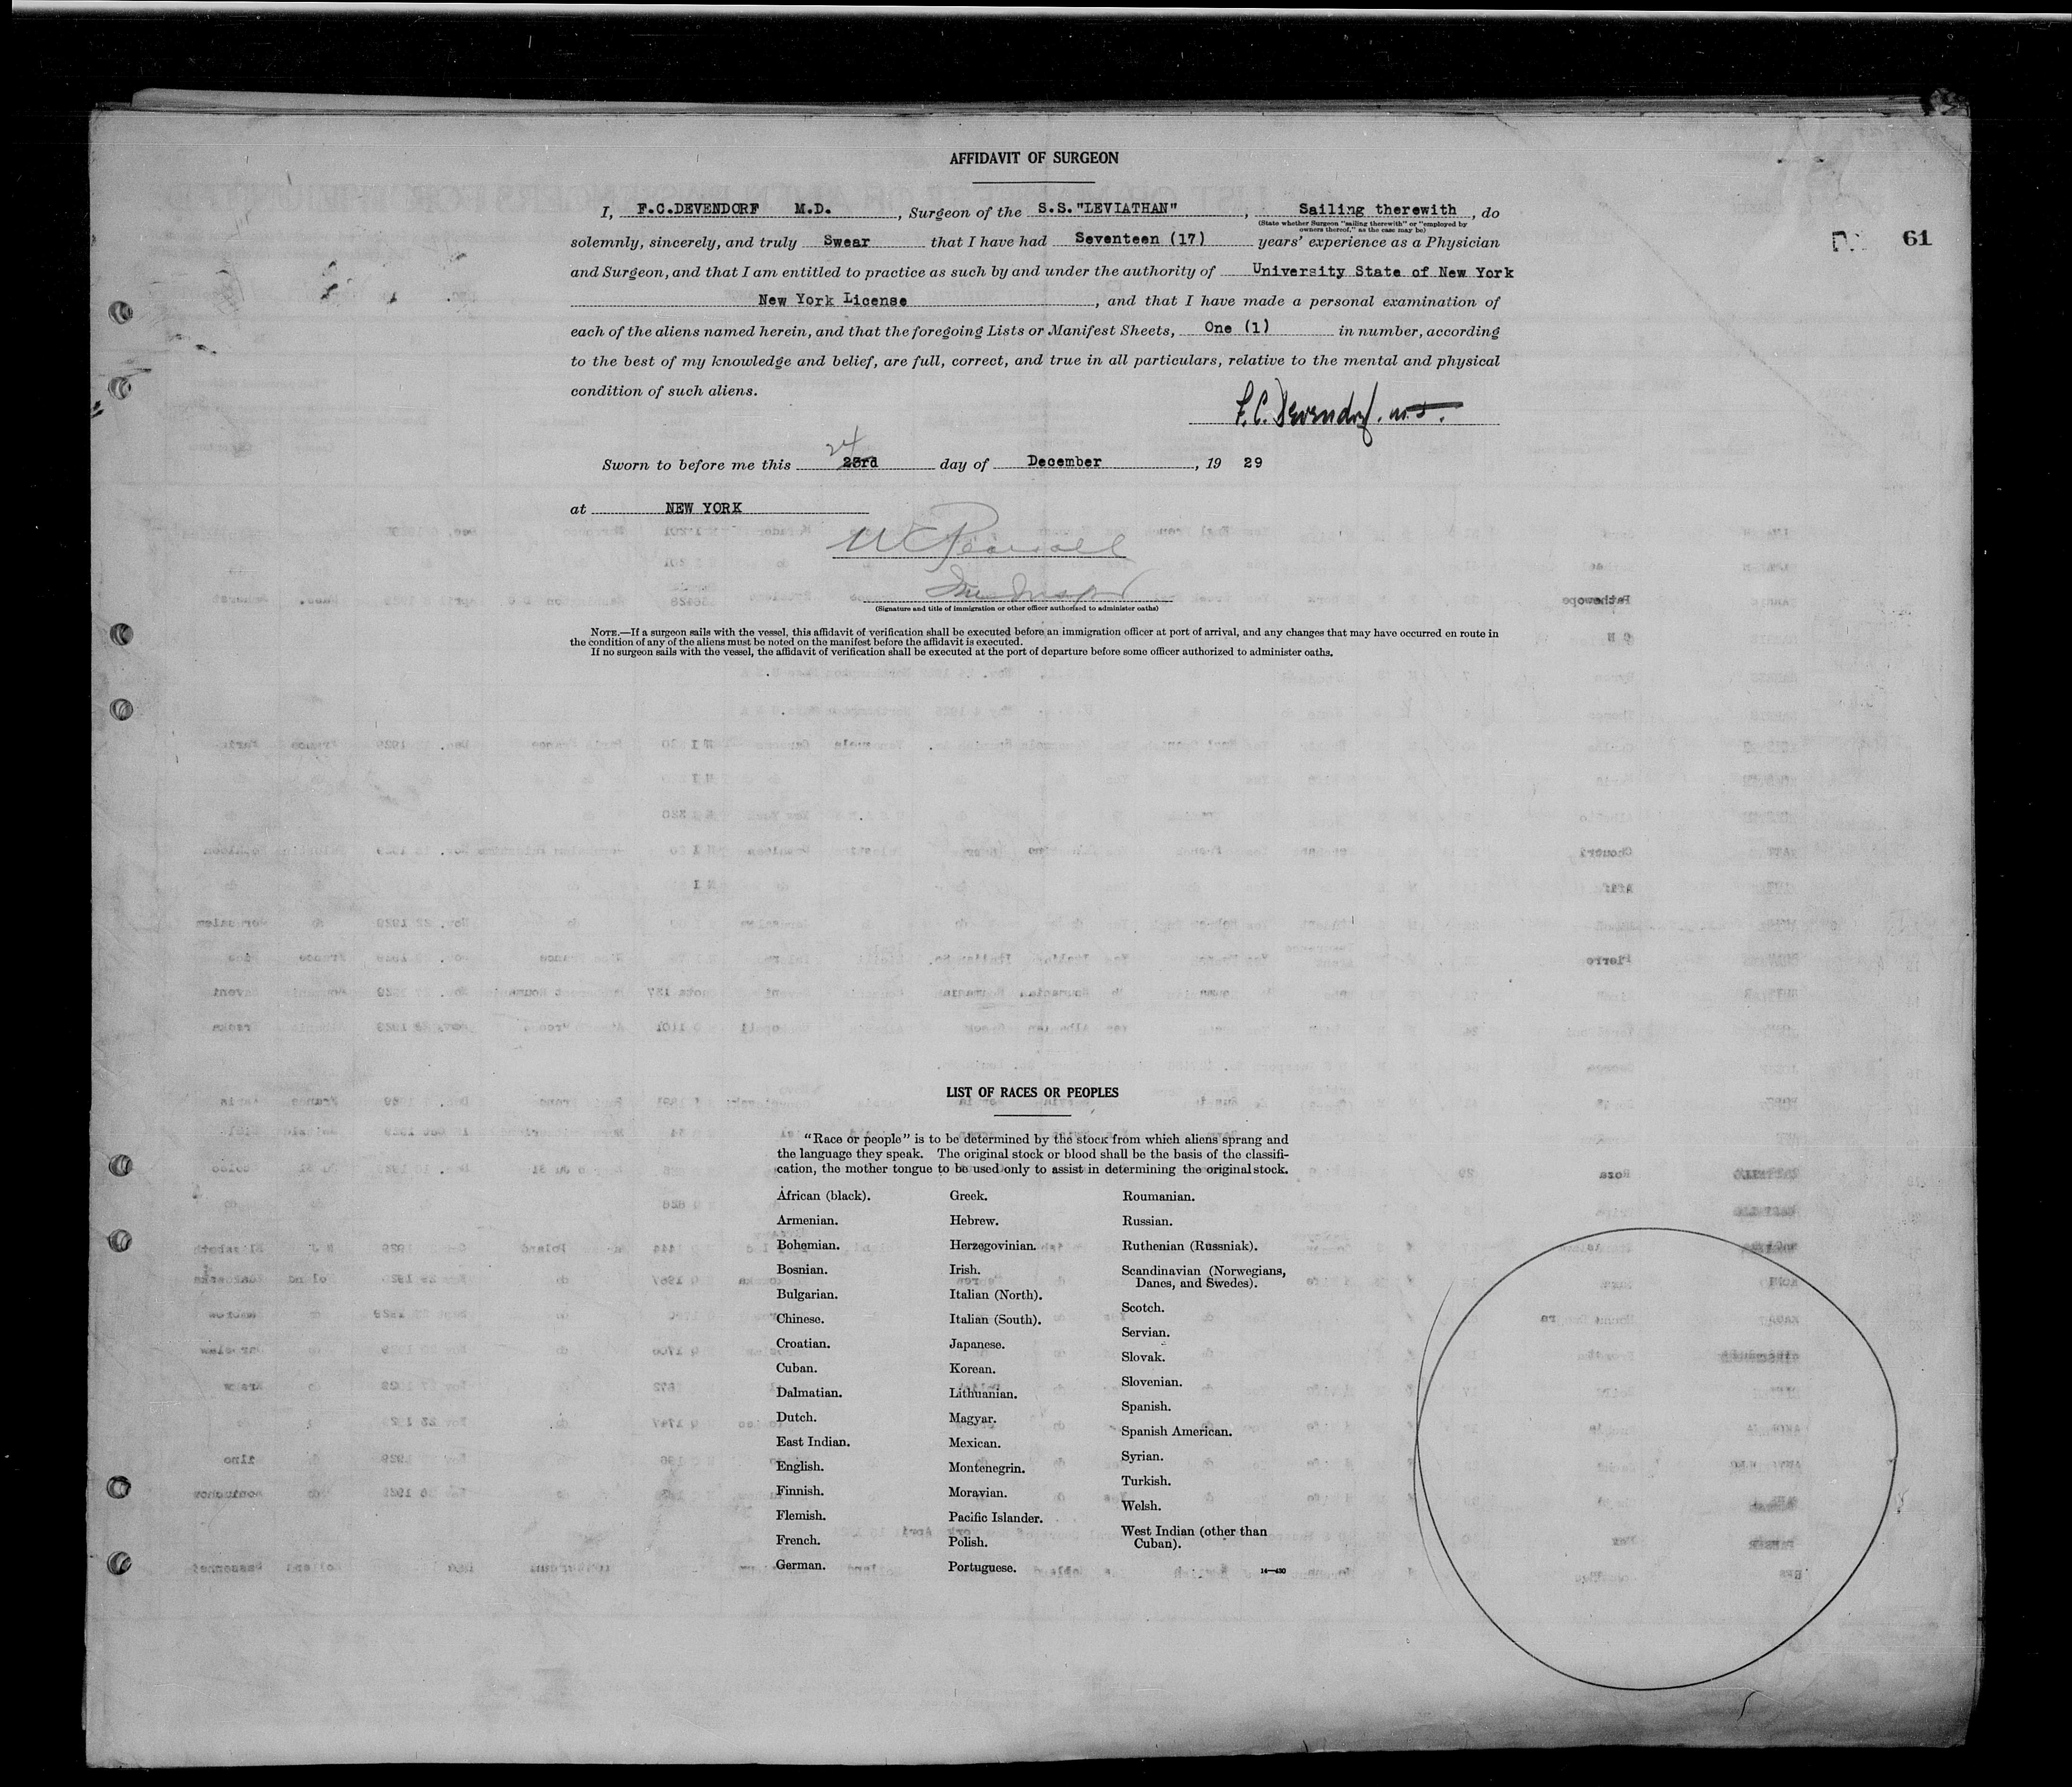 AFFIDAVIT OF SURGEON
I, F.C.DEVENDORF M.D. , Surgeon of the S.S."LEVIATHAN" , Sailing therewith , do
(State whether Surgeon "sailing therewith" or "employed by
owners thereof," as the case may be)
solemnly, sincerely, and truly Swear that I have had Seventeen (17) years' experience as a Physician
61
and Surgeon, and that I am entitled to practice as such by and under the authority of University State of New York
New York License , and that I have made a personal examination of
each of the aliens named herein, and that the foregoing Lists or Manifest Sheets, One (1) in number, according
to the best of my knowledge and belief, are full, correct, and true in all particulars, relative to the mental and physical
condition of such aliens.
F.C. Devendorf. M.D.
24
Sworn to before me this 23rd day of December , 19 29
at NEW YORK
(Signature and title of immigration or other officer authorized to administer oaths)
NOTE.—If a surgeon sails with the vessel, this affidavit of verification shall be executed before an immigration officer at port of arrival, and any changes that may have occurred en route in
the condition of any of the aliens must be noted on the manifest before the affidavit is executed.
If no surgeon sails with the vessel, the affidavit of verification shall be executed at the port of departure before some officer authorized to administer oaths.
LIST OF RACES OR PEOPLES
"Race or people" is to be determined by the stock from which aliens sprang and
the language they speak. The original stock or blood shall be the basis of the classifi-
cation, the mother tongue to be used only to assist in determining the original stock.
African (black).
Armenian.
Bohemian.
Bosnian.
Bulgarian.
Chinese.
Croatian.
Cuban.
Dalmatian.
Dutch.
East Indian.
English.
Finnish.
Flemish.
French.
German.
Greek.
Hebrew.
Herzegovinian.
Irish.
Italian (North).
Italian (South).
Japanese.
Korean.
Lithuanian.
Magyar.
Mexican.
Montenegrin.
Moravian.
Pacific Islander.
Polish.
Portuguese.
Roumanian.
Russian.
Ruthenian (Russniak).
Scandinavian (Norwegians,
Danes, and Swedes).
Scotch.
Servian.
Slovak.
Slovenian.
Spanish.
Spanish American.
Syrian.
Turkish.
Welsh.
West Indian (other than
Cuban).
14—430